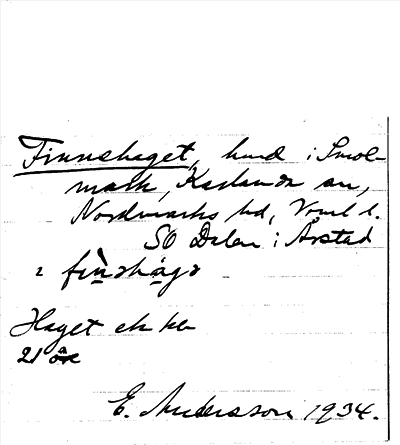 Finnshaget, hmd i Smol-
mark, Karlanda sn,
Nordmarks hd, Vrml l.
SO Dalen i Årstad
2 fin̥ạhạgə
Haget
21
E. Andersson 1934.